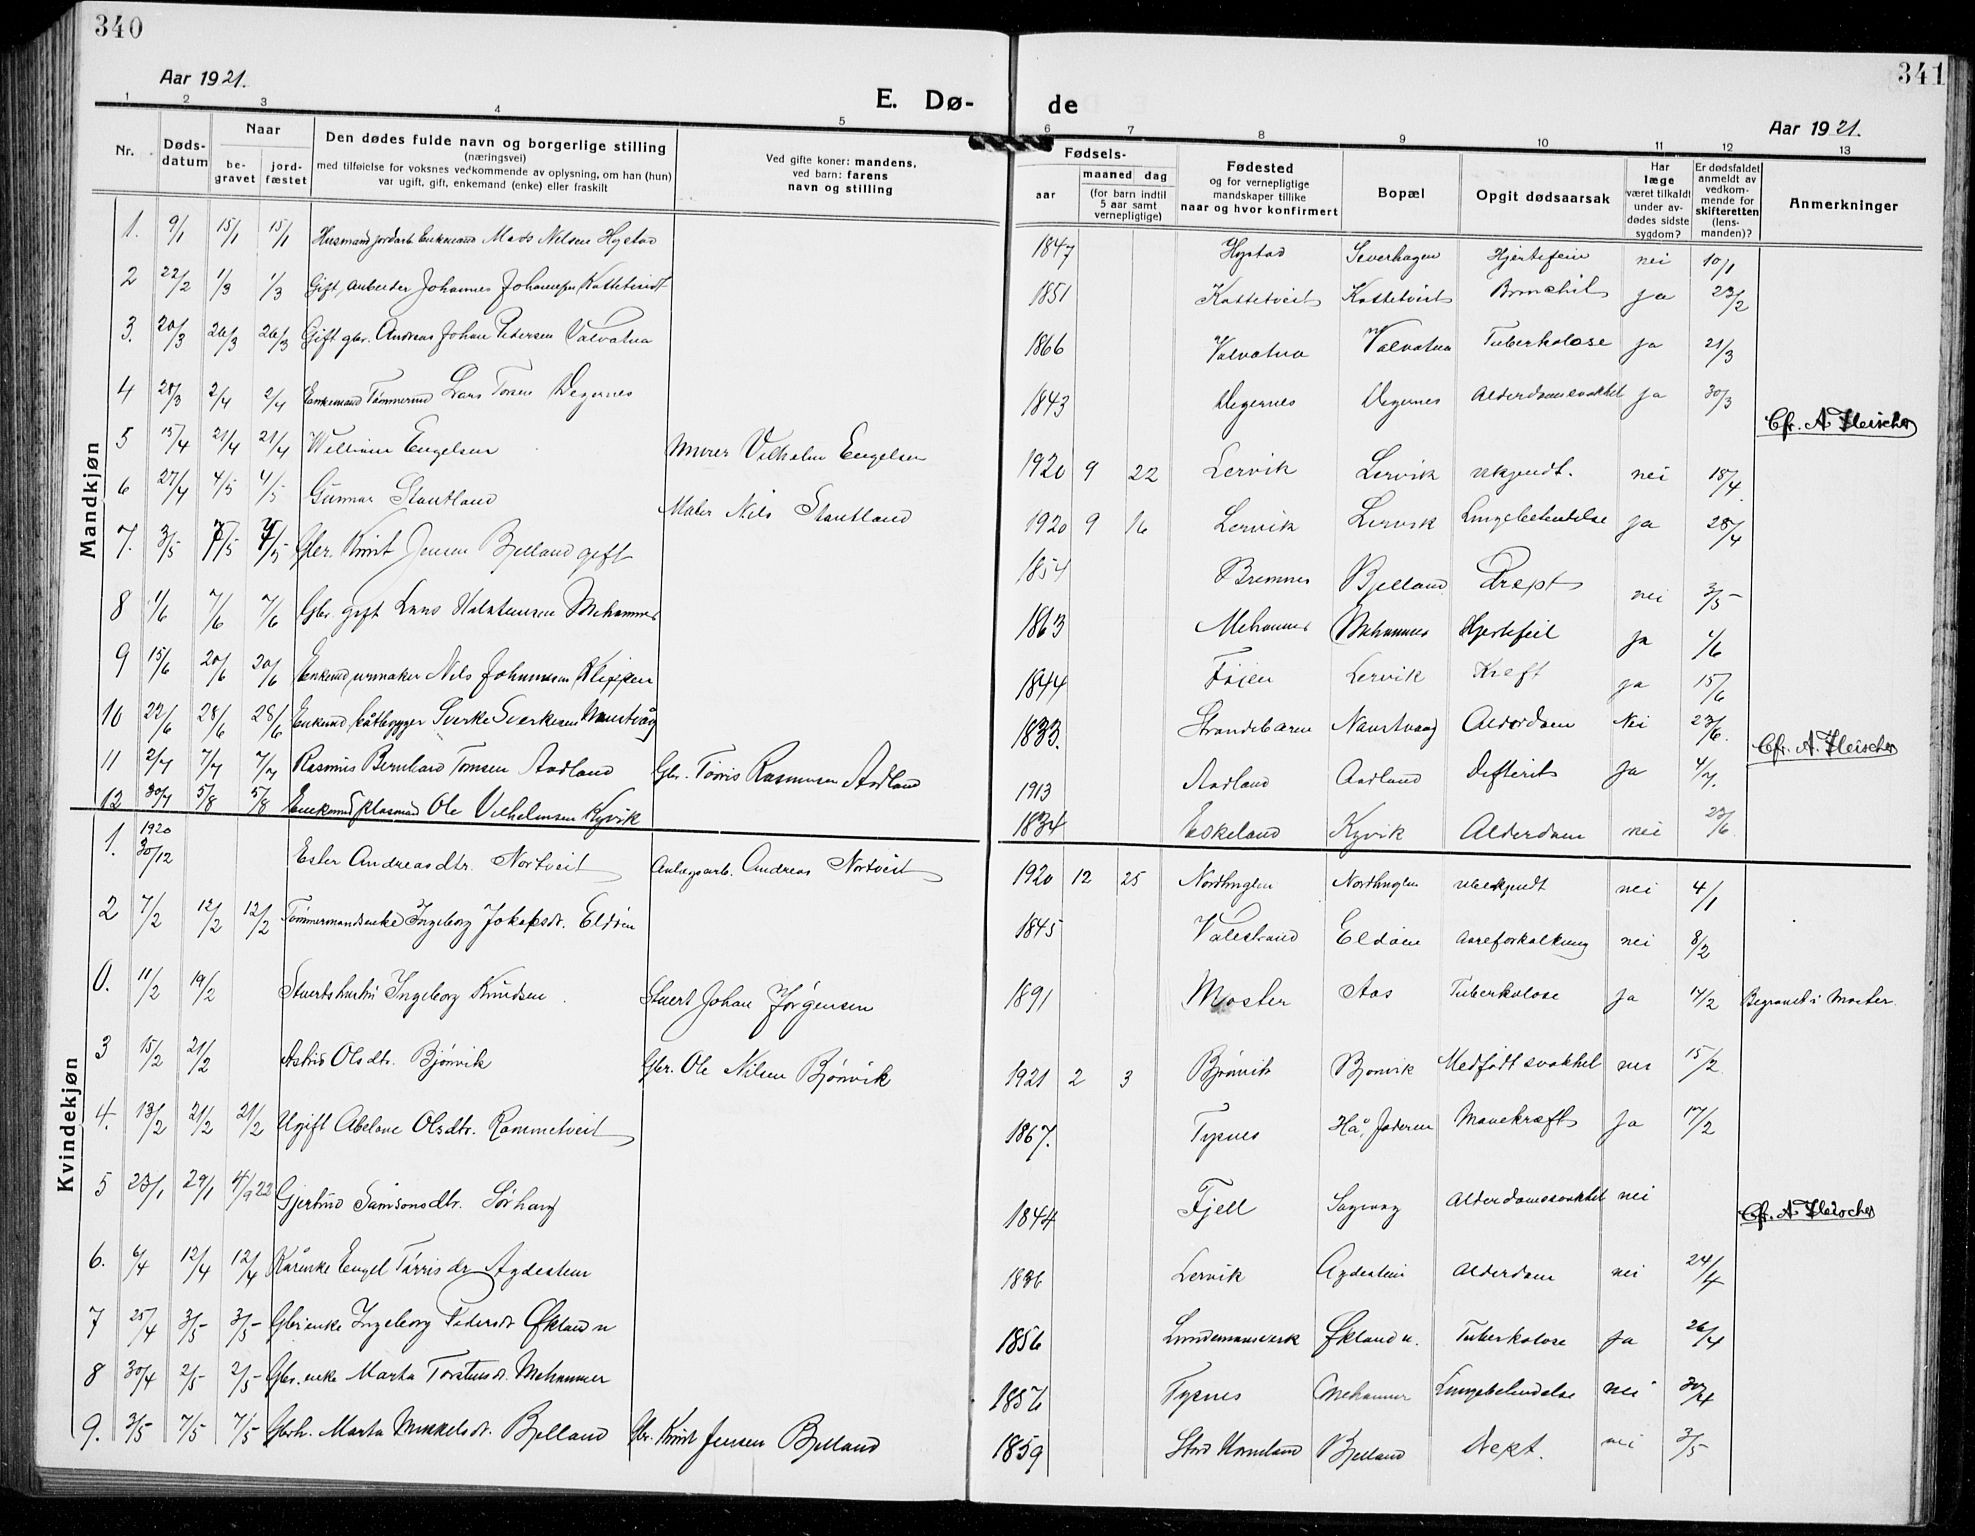 340
341
Aar 1921.
E. Dø-
de
Aar 1921.
1 2 3 4 5 6 7 8 9 10 11 12 13
Nr.
Døds-
datum
Naar
be-
gravet
jord-
fæstet
Den dødes fulde navn og borgerlige stilling
(næringsvei)
med tilføielse for voksnes vedkommende av oplysning, om han (hun)
var ugift, gift, enkemand (enke) eller fraskilt
Ved gifte koner: mandens,
ved barn: farens
navn og stilling
Fødsels-
aar
maaned dag
(for barn indtil
5 aar samt
vernepligtige)
Fødested
og for vernepligtige
mandskaper tillike
naar og hvor konfirmert
Bopæl
Opgit dødsaarsak
Har
læge
været tilkaldt
under av-
dødes sidste
sygdom?
Er dødsfaldet
anmeldt av
vedkom-
mende for
skifteretten
(lens-
manden)?
Anmerkninger
Mandkjøn
1. 9/1 15/1 15/1 Husmand jordarb. Enkemand Mads Nilsen Hystad 1847 Hystad Severhagen Hjertefein nei 10/1
2 22/2 1/3 1/3 Gift, Arbeider Johannes Johannesen Kattetveit 1851 Kattetveit Kattetveit Bronchit ja 23/2
3. 20/3 26/3 26/3 Gift gbr. Andreas Johan Pedersen Valvatna 1866 Valvatna Valvatna Tuberkolose ja 21/3
4 28/3 2/4 2/4 Enkemand Tømmermd Lars Torsen Degernes 1843 Degernes Degernes Alderdomsvakhet ja 30/3
Cfr. A Fleischer
5 15/4 21/4 21/4 William Engelsen Murer Vilhelm Engelsen 1920 9 22 Lervik Lervik ukjendt. nei 18/4
6 27/4 4/5 4/5 Gunnar Stautland Maler Nils Stautland 1920 9 16 Lervik Lervik Lungebetendelse ja 28/4
7. 3/5 7/5 7/5 Gbr. Knut Jensen Bjelland gift 1854 Bremnes Bjelland Drept nei 3/5
8 1/6 7/6 7/6 Gbr. gift Lars Halstensen Mehammer 1863 Mehammer Mehammer Hjertefeil ja 4/6
9 15/6 20/6 20/6 Enkemd, urmaker Nils Johannesen Klippen 1844 Føien Lervik Kreft ja 15/6
10 22/6 28/6 28/6 Enkemd, båtbygger Sverke Sverkesen Naustvåg 1833. Strandebarm Naustvaag Alderdom Nei 23/6.
Cfr. A. Fleischer
11 2/7 7/7 7/7 Rasmus Bernhard Tomsen Aadland Gbr. Tørris Rasmussen Aadland 1913 Aadland Aadland Difterit ja 4/7.
12 30/7 5/8 5/8 Enkemd Ole Vilhelmsen Kyvik 1834 Eskeland Kyvik Alderdom nei 23/6
Kvindekjøn
1. 1920 30/12 Ester Andreasdtr. Nortveit Anlægsarb. Andreas Nortveit 1920 12 25 Nordhuglen Nordhuglen ubekjendt nei 4/1
2 7/2 12/2 12/2 Tømmermandsenke Ingeborg Jokopsdr. Eldøen 1845 Valestrand Eldøen Aareforkalkning nei 8/2
0. 11/2 19/2 Stuertshustru Ingeborg Knudsen Stuert Johan Jørgensen 1891 Moster Aas Tuberkolose ja 14/2 Begravet i Moster.
3 15/2 21/2 Astrid Olsdtr. Bjørnvik Gbr. Ole Nilsen Bjørnvik 1921 2 3 Bjørnvik Bjørnvik Medfødt svakhet nei 15/2
4. 13/2 21/2 21/2 Ugift Abelone Olsdtr. Rommetveit 1867. Tysnes Hå, Jæderen Mavekræft Ja 17/2
5 23/1 29/1 4/9 22 Gjertrud Samsonsdtr. Sørhaug 1844 Fjell Sagvaag Alderdomssvakhet nei
Cfr. A Fleischer
6. 6/4 12/4 12/4 Kårenke Engel Tørrisdr Agdestein 1836 Lervik Agdestein Alderdom nei 24/4
7 25/4 3/5 3/5 Gbr.enke Ingeborg Pedersdr Økland n 1856 Lundemannsverk Økland n. Tuberkolose ja 26/4
8 30/4 2/5 2/5 Gbr. enke Marta Torstensdr. Mehammer 1857 Tysnes Mehammer Lungebetendelse nei 30/4
9. 3/5 7/5 7/5 Gbrh. Marta Mikkelsdr. Bjelland Gbr. Knut Jensen Bjelland 1859 Stord Bjelland Drept. nei 3/5